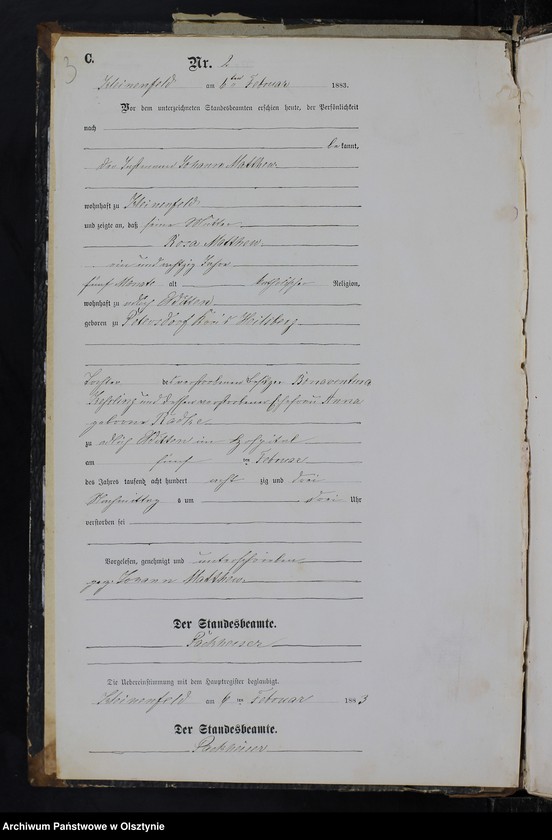 3
C.
Nr. 2
Kleinenfeld am 6ten Februar 1883.
Vor dem unterzeichneten Standesbeamten erschien heute, der Persönlichkeit
nach
be kannt,
der Instmann Johann Matthew
wohnhaft zu Kleinenfeld
und zeigte an, daß seine Mutter
Rosa Matthew
ein und achtzig Jahre
fünf Monate alt katholischer Religion,
wohnhaft zu adlich Witten
geboren zu Petersdorf Kreis Heilsberg
Tochter verstorbenen Besitzer Bonaventura
und dessen verstorbenen Ehefrau Anna
geborne Radtke
zu adlich Witten im Hospital
am fünf ten Februar
des Jahres tausend acht hundert acht zig und drei
Nachmittag s um drei Uhr
verstorben sei
Vorgelesen, genehmigt und unterschrieben
gez. Johann Matthew
Der Standesbeamte.
Packheiser
Die Uebereinstimmung mit dem Hauptregister beglaubigt.
Kleinenfeld am 6 ten Februar 1883
Der Standesbeamte.
Packheiser
Archiwum Państwowe w Olsztynie